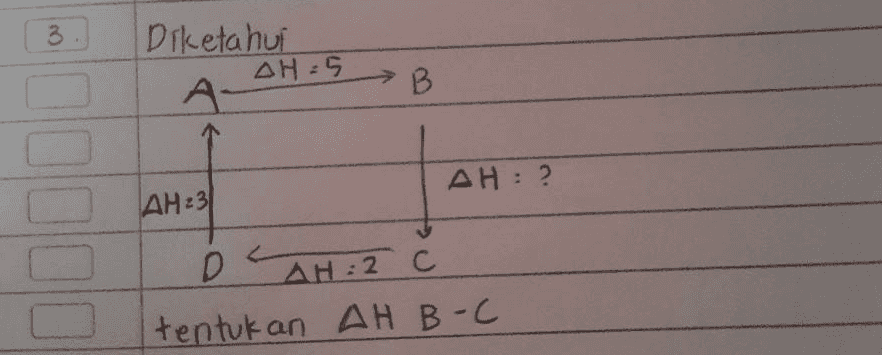 3. Diketahui
ΔH = 5
A B
ΔH : ?
ΔH = 3
D C
ΔH : 2
tentukan ΔH B - C